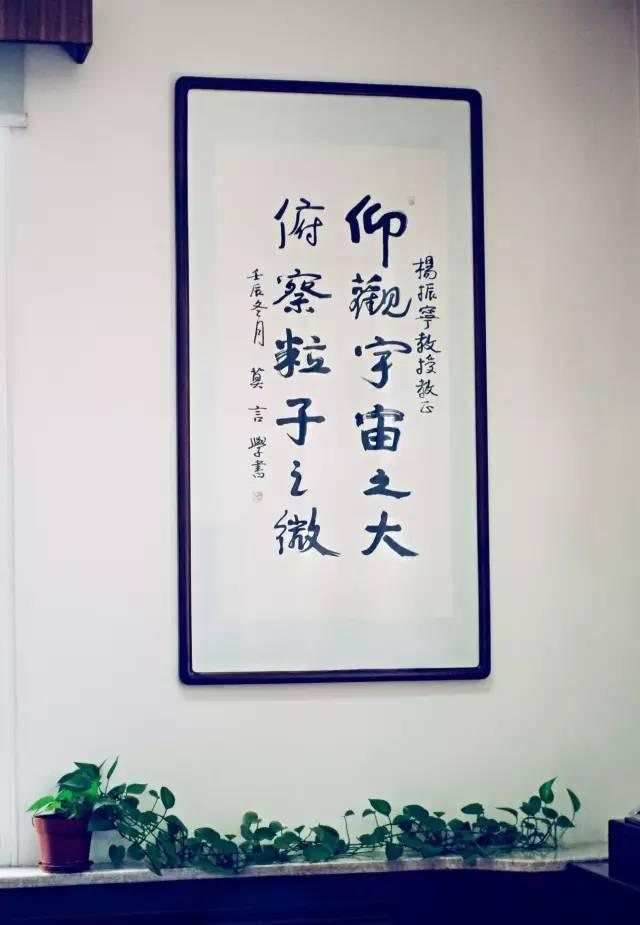 楊振寧教授教正
仰觀宇宙之大
俯察粒子之微
壬辰冬月 莫言學書